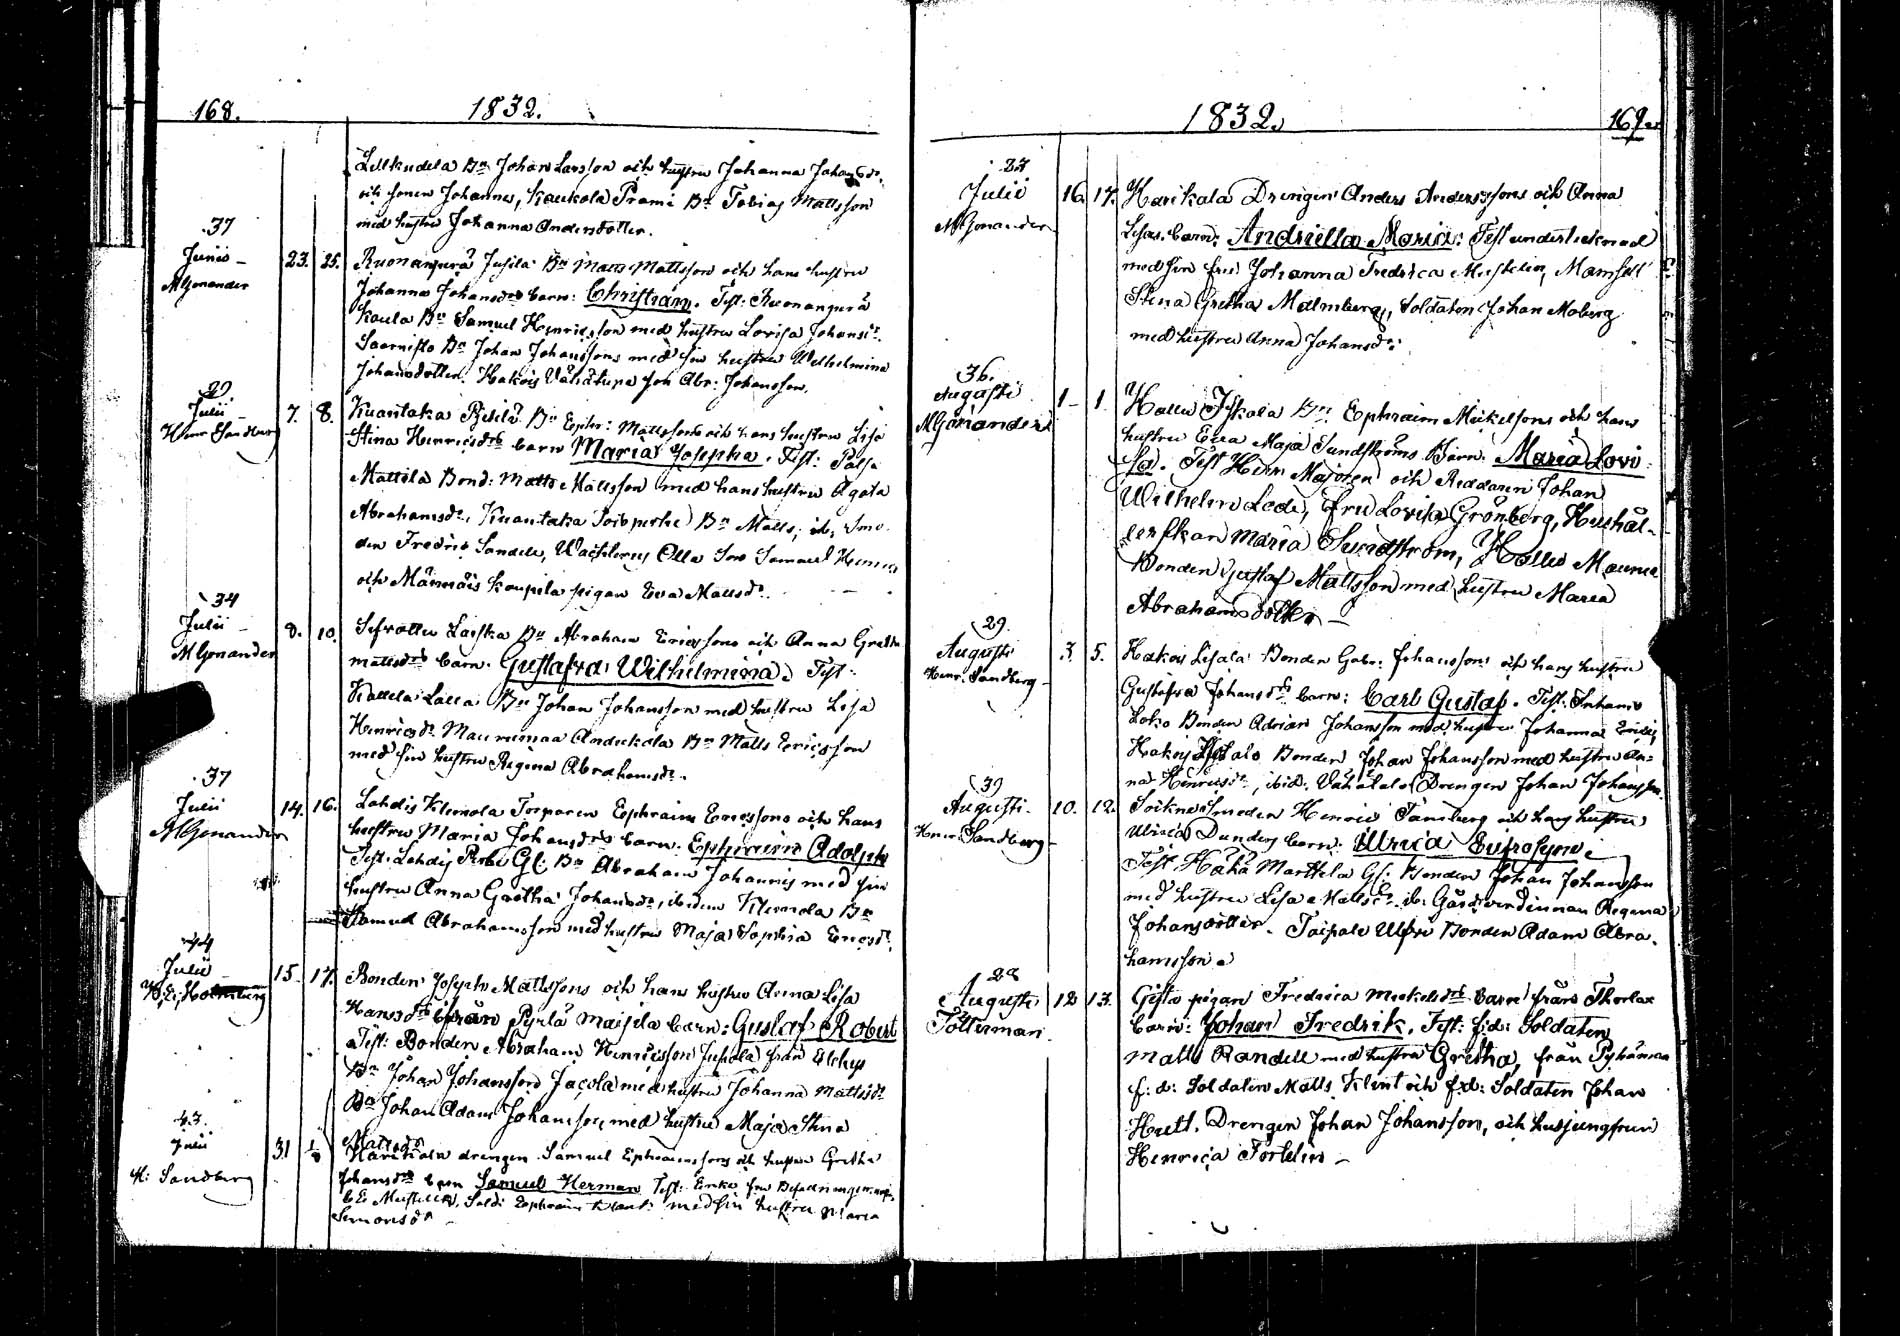 168. 1832.
Lillkudila Bn Johan Larsson och hustru Johanna Johansdr,
och sonen Johannes, Kaukola Prami Bn Tobias Mattsson
med hustru Johanna Andersdotter.
37
Junii 23. 25. Ruonanperä Jusila Bn Matts Mattsson och hans hustru
M Gonander Johanna Johansdrs barn: Christian. Test: Ruonanperä
Kaula Bn Samuel Henricsson med hustru Lovisa Johansdr.
Saarnisto Bn Johan Johanssons med sin hustru Wilhelmina
Johansdotter. Hakois Vähätupa son Abr: Johansson.
29
Julii 7. 8. Kuantaka Bn Ephr: Mattssons och hans hustru Lisa
Henr Sandberg Stina Henricsdrs barn Maria Josepha. Test: Palsa
Mattila Bond: Matts Mattsson med hans hustru Agata
Abrahamsdr, Kuantaka Bn Matts, ib, Sme-
den Fredric Sandell, Olla Samuel
och Männäis Kaupila pigan Eva Mattsdr.
34
Julii 8. 10. Laiska Bn Abraham Ericssons och Anna Gretha
M Gonander Mattsdrs barn. Gustafva Wilhelmina. Test:
Kallela Lalla Bn Johan Johansson med hustru Lisa
Henricsdr Maunumaa Andickala Bn Matts Ericsson
med sin hustru Regina Abrahamsdr.
37
Julii 14. 16. Lahdis Klemola Torparen Ephraim Ericssons och hans
M Gonander hustru Maria Johansdrs barn. Ephraim Adolph
Test. Lahdis Gl: Bn Abraham Johannis med sin
hustru Anna Gretha Johansdr, ibidem Klemola Bn
Samuel Abrahamsson med hustru Maja Sophia Ericsdr.
44
Julii 15 17. Bonden Joseph Mattssons och hans hustru Anna Lisa
Holmberg Hansdrs från Pyrlä Maijila barn: Gustaf Robert
Test: Bonden Abraham Henricsson Jusala från
Bn Johan Johansson Jacola med hustru Johanna Mattsdr
Bn Johan Adam Johansson med hustru Maja Stina
Mattsdr
43.
Julii 31 1/8 Harikala drengen Samuel Ephraimssons och hustru Gretha
H: Sandberg Johansdrs barn Samuel Herman Test: Enke fru
C E Mustelin, Sold: Ephraim med sin hustru Maria
Simonsdr
1832. 169.
23
Julii 16. 17. Harikala Drengen Anders Anderssons och Anna
M Gonander Lisas barn: Andriella Maria: Test undertecknad
med sin fru Johanna Fredrica Mustelin, Mamsell
Stina Gretha Malmberg, Soldaten Johan Moberg
med hustru Anna Johansdr:
36.
Augusti 1 1 Hallu Iskala Bn Ephraim Mickelssons och hans
M Gonander hustru Eva Maja Sundströms Barn: Maria Lovi-
sa. Test Herr Majoren och Riddaren Johan
Wilhelm Lode, fru Lovisa Grönberg, Hushål-
lerskan Maria Sundström, Hallu Maunu
Bonden Gustaf Mattsson med hustru Maria
Abrahamsdotter
29.
Augusti 3. 5. Hakois Lisala Bonden Gabr: Johanssons och hans hustru
Henr: Sandberg Gustafva Johansdrs barn: Carl Gustaf. Test:
Loko Bonden Adrian Johansson med hustru Johanna
Hakois Bonden Johan Johansson med hustru An-
na Henricsdr, ibid: Vähätalo Drengen Johan Johansson.
39
Augusti 10. 12. Sockne Smeden Henric Tamberg och hans hustru
Henr: Sandberg Ulrica Dunders barn. Ulrica Eufrosyne
Test Hähä Marttila Gl: Bonden Johan Johansson
med hustru Lisa Mattsdr ib: Gårdvärdinnan Regina
Johansdotter. Taipale Uusi Bonden Adam Abra-
hamsson.
28
Augusti 12 13. Gifta pigan Fredrica Mickelsdrs Barn från Thorlax
Totterman barn: Johan Fredrik. Test: f:d: Soldaten
Matts Randell med hustru Gretha, från Pyhämaa
f: d: Soldaten Matts Klint och f:d: Soldaten Johan
Hutt. Drengen Johan Johansson, och husjungfrun
Henrica Forselin